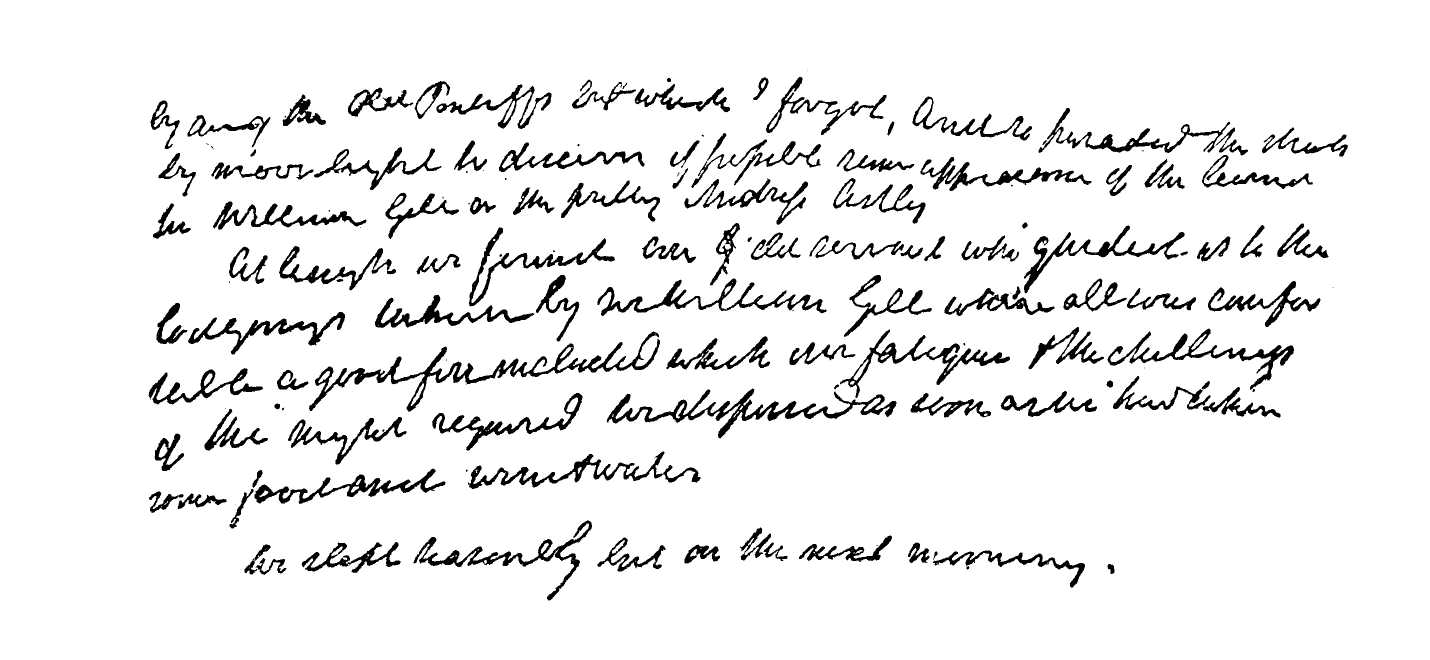 by any of the Old Pontiffs but which I forget, and so paraded the streets
by moon light to discern if possible some appearance of the learned
Sir William Gell or the pretty Andrew Astley
At length we found an old servant who guided us to the
lodgings taken by Sir William Gell where all was comfor
table a good fire included which our fatigue & the chillings
of the night required we dispersed as soon as we had taken
some food and wine & water
we slept reasonably but on the next morning.